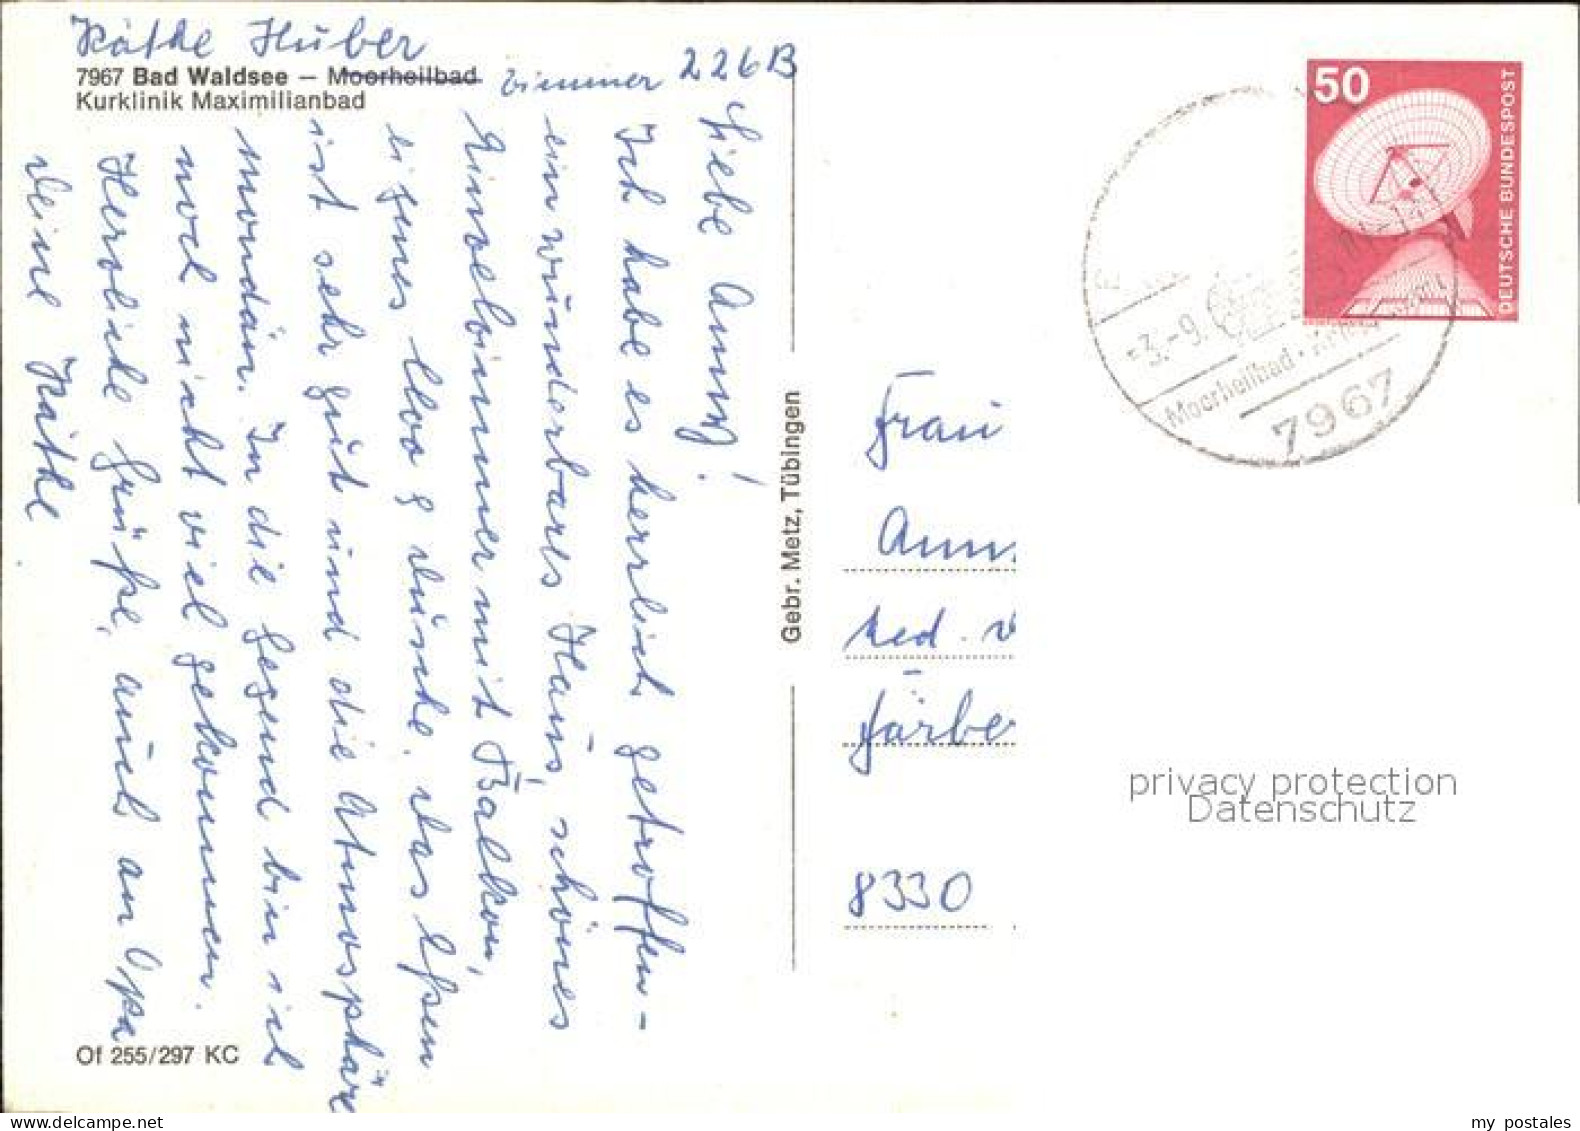 Käthe Huber
7967 Bad Waldsee – Moorheilbad
Kurklinik Maximilianbad
Zimmer 226B
Liebe Anny!
Ich habe es herrlich getroffen –
ein wunderbares Haus, schönes
Einzelzimmer mit Balkon,
eigenes Clo & Dusche. Das Essen
ist sehr gut und die Atmosphäre
mondän. In die Gegend bin ich
noch nicht viel gekommen.
Herzliche Grüße, auch an Opa
Deine Käthe
Of 255/297 KC
Gebr. Metz, Tübingen
50
DEUTSCHE BUNDESPOST
-3.-9.
Moorheilbad
7967
Frau
Ann
Färber
8330
privacy protection
Datenschutz
my postales